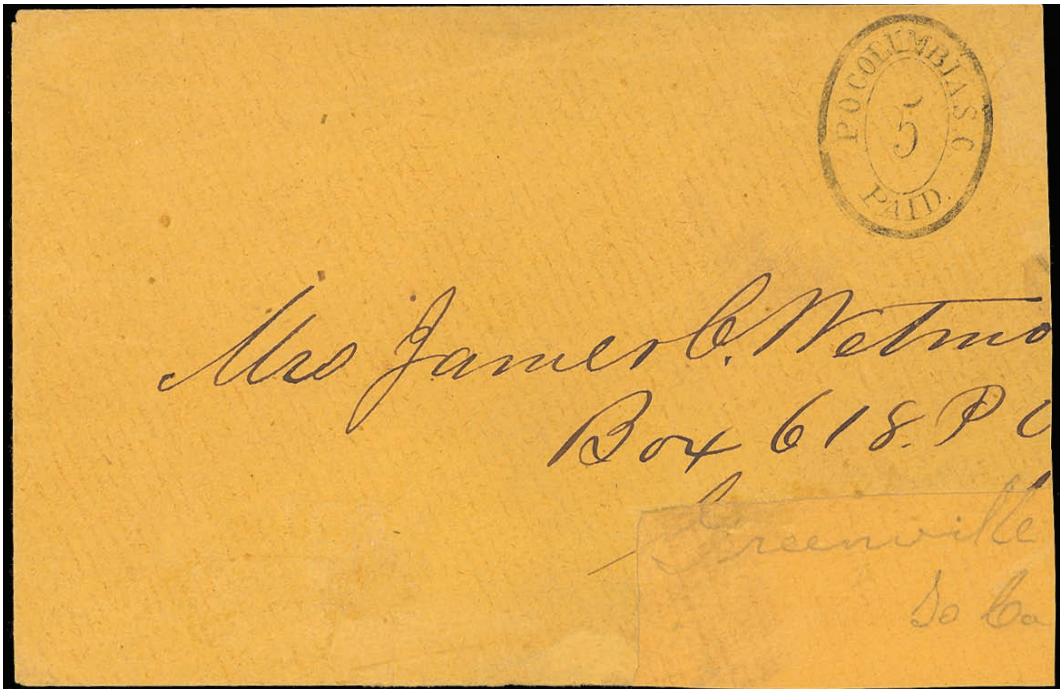 P.O COLUMBIA. S.C
5
PAID.
Mrs James C. Wetmo
Box 618. P O
Greenville
So Ca